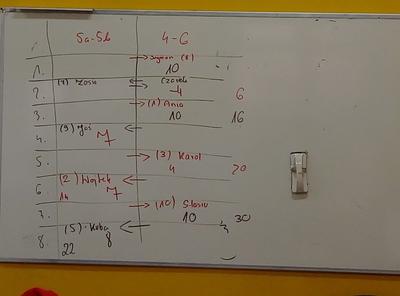 5a-5b 4-6
1. Szymon (8)
10
(7) Zosia Czarek
2. 4 6
3. (1) Ania
10 16
(9)
4. 7
5. (3) Karol
4 20
(2) Wojtek
6. 14 7
7. (10) Stasiu
10 30
(5) Kuba
8. 22 8